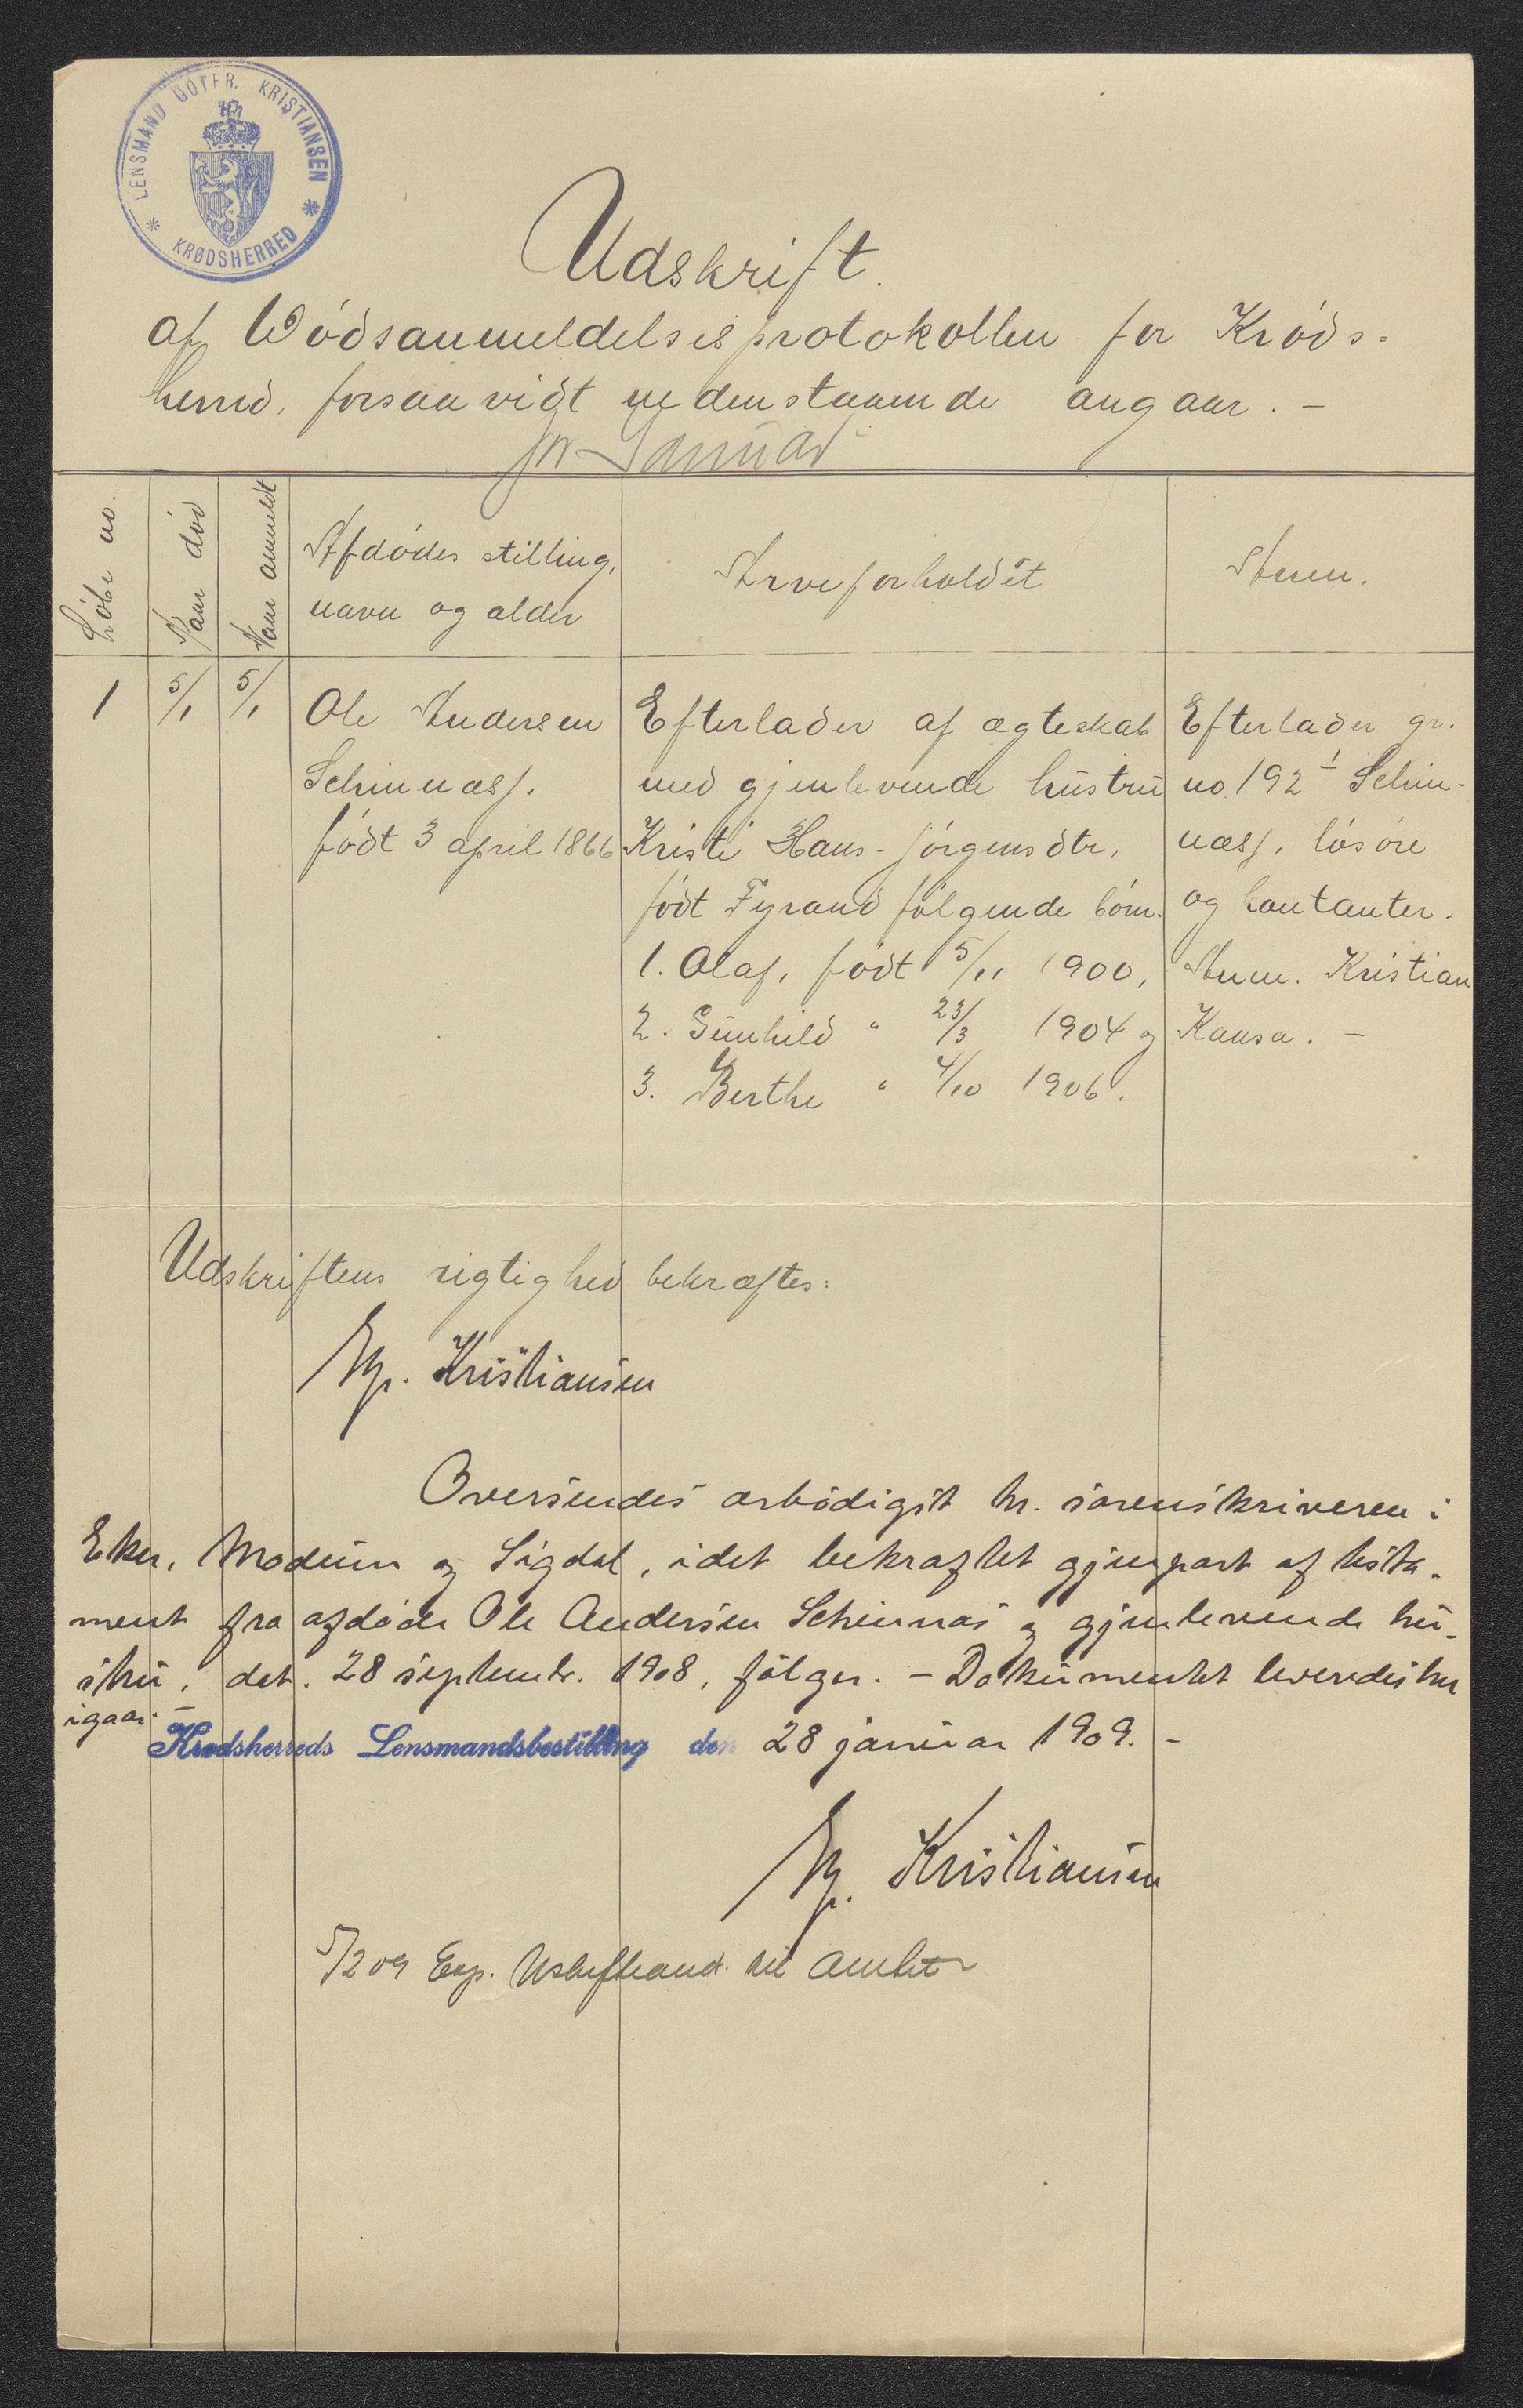 LENSMAND GOTFR. KRISTIANSEN
KRØDSHERRED
Udskrift.
af Dødsanmeldelsesprotokollen for Krøds-
herred, forsaavidt nedenstaaende angaar. -
for Januar
Løbe no.
Naar død
Naar anmeldt
Afdødes stilling,
navn og alder
Arveforholdet
Anm.
1
5/1
5/1
Ole Andersen
Schinnæss.
født 3 april 1866
Efterlader af ægteskab
med gjenlevende hustru
Kristi Hans-Jørgensdtr,
født Fyrand følgende børn.
1. Olaf, født 5/11 1900,
2. Gunhild " 23/3 1904 og
3. Berthe " 4/10 1906.
Efterlader gr.
no 192 1 Schin-
næss, løsøre
og kontanter.
Anm. Kristian
Kansa. -
Udskriftens rigtighed bekræftes:
Kristiansen
Oversendes ærbødigst hr. sorenskriveren i
Eker, Modum og Sigdal, idet bekræftet gjenpart af testa-
ment fra afdøde Ole Andersen Schinnæs og gjenlevende hu-
stru, dat. 28 septembr. 1908, følger. - Dokumentet leveredes her
igaar. -
Krødsherreds Lensmandsbestilling den 28 januar 1909. -
Kristiansen
5/2 09 Exp. til Amtet